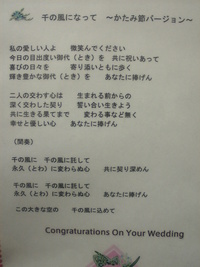 千の風になって　～かたみ節バージョン～
私の愛しい人よ　微笑んでください
今日の目出度い御代（とき）を　共に祝いあって
喜びの日々を　寄り添いともに歩く
輝き豊かな御代（とき）を　あなたに捧げん
二人の交わす心は　生まれる前からの
深く交わした契り　誓い合い生きよう
共に生きる果てまで　変わる事など無く
幸せと優しい心　あなたに捧げん
（間奏）
千の風に　千の風に託して
永久（とわ）に変わらぬ心　共に契り深めん
千の風に　千の風に託して
永久（とわ）に変わらぬ心　あなたに捧げん
この大きな空の　千の風に込めて
Congraturations On Your Wedding